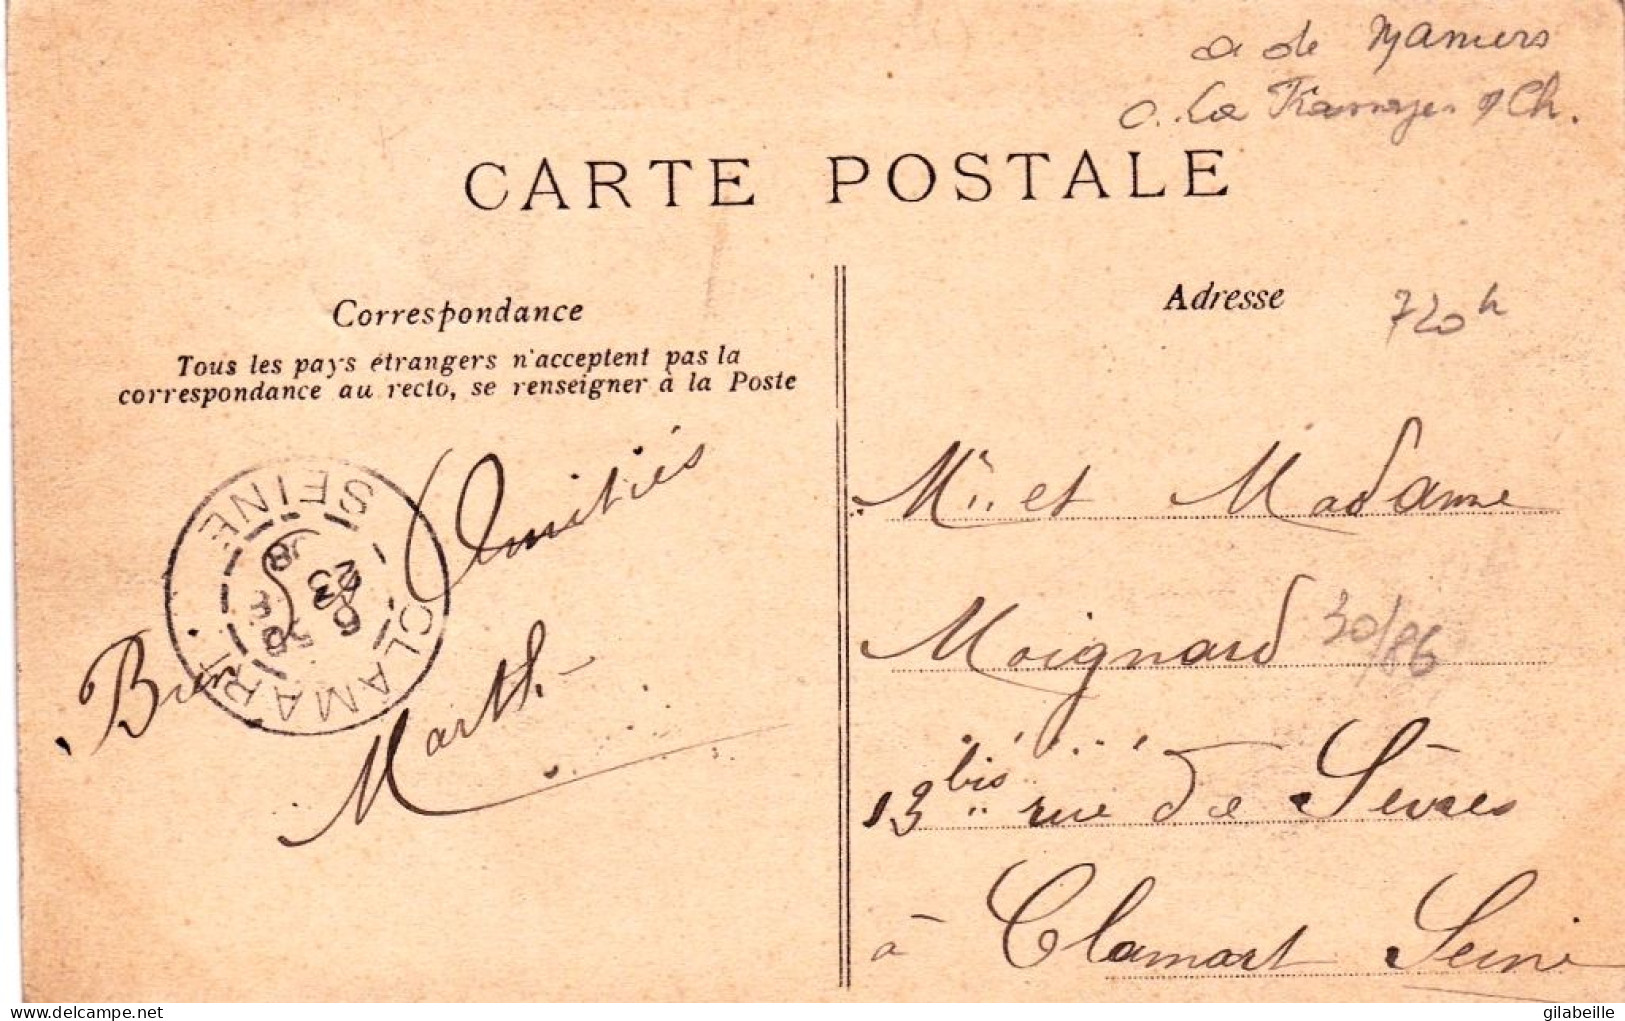 a de Mamers
C. La Fresnaye s/Ch.
CARTE POSTALE
Correspondance
Tous les pays étrangers n'acceptent pas la
correspondance au recto, se renseigner à la Poste
Bien Amitiés
Marth
CLAMART
SEINE
Adresse
720h
Mr et Madame
Moignard
30/86
13 bis rue de Sèvres
à Clamart Seine
www.delcampe.net
gilabeille